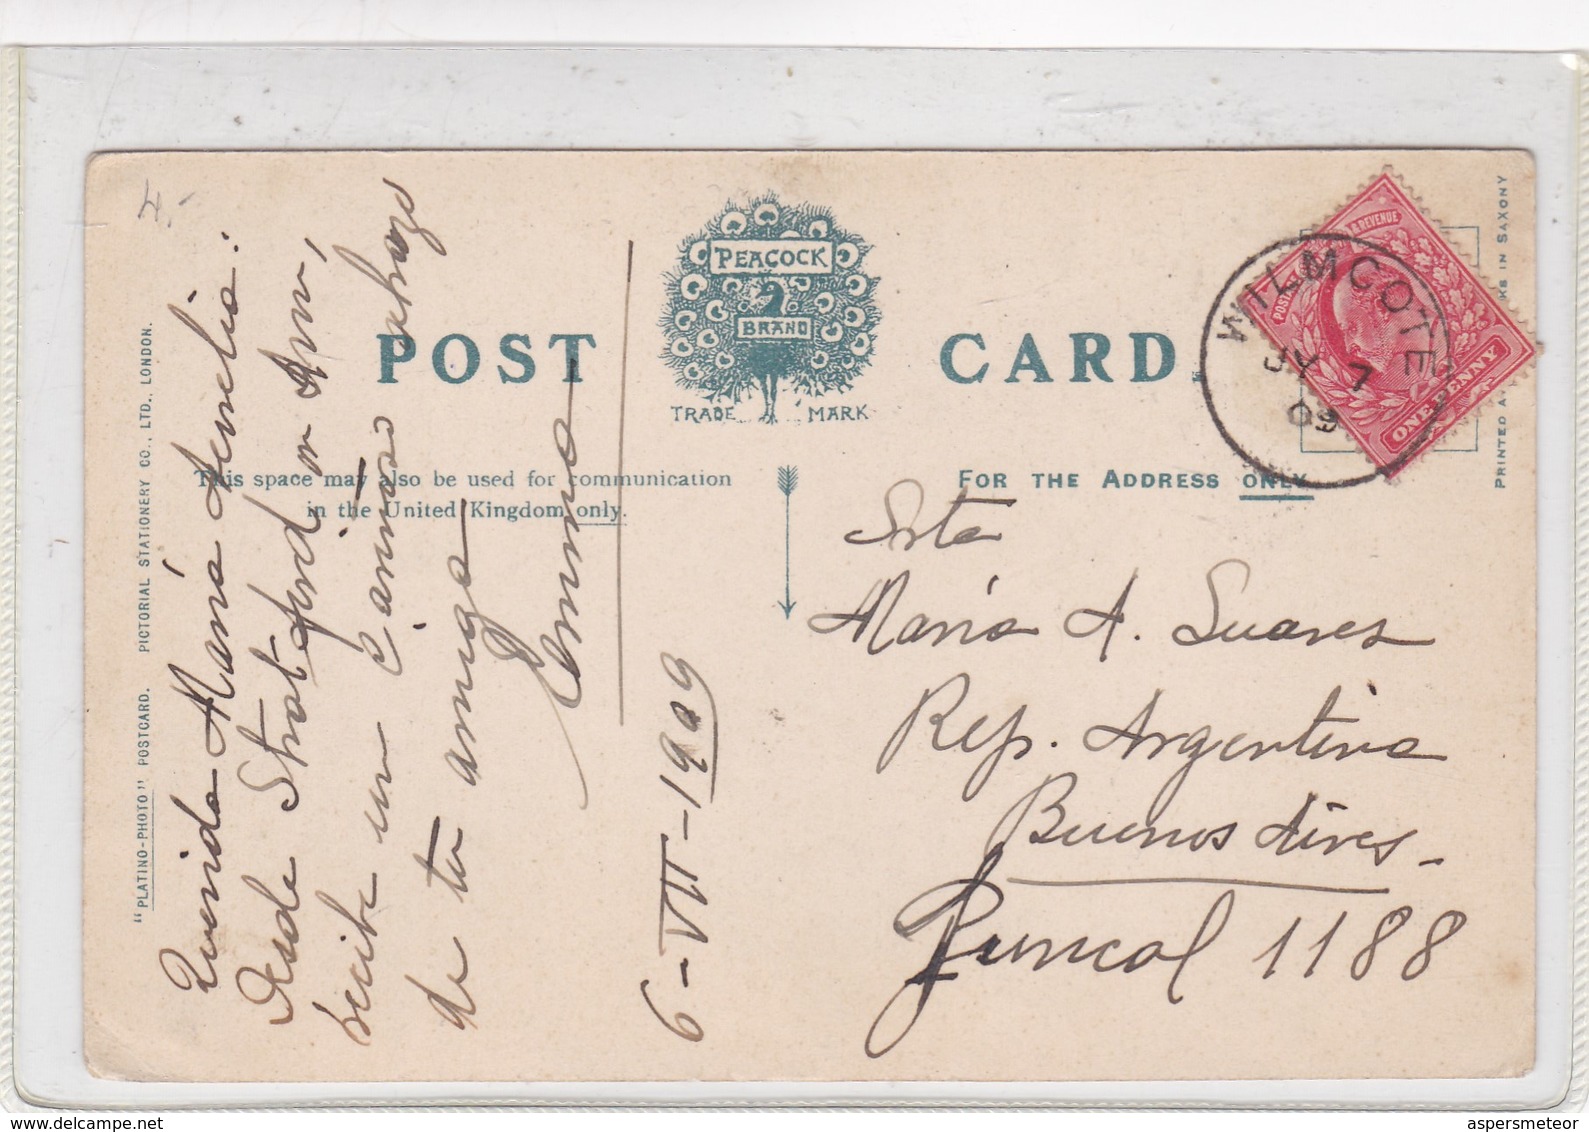 4.-
"PLATINO-PHOTO" POSTCARD. PICTORIAL STATIONERY CO., LTD., LONDON.
POST CARD.
PEACOCK
BRAND
TRADE MARK
This space may also be used for communication
in the United Kingdom only.
FOR THE ADDRESS ONLY.
Querida María Amelia:
Desde Stratford on Avon,
recibe un cariñoso abrazo
de tu amiga
Emma
6-VII-1909
Srta
María A. Suares
Rep. Argentina
Buenos Aires-
Juncal 1188
POSTAGE & REVENUE
ONE PENNY
WILMCOTE
JY 7
09
PRINTED AT KS IN SAXONY
aspersmeteor